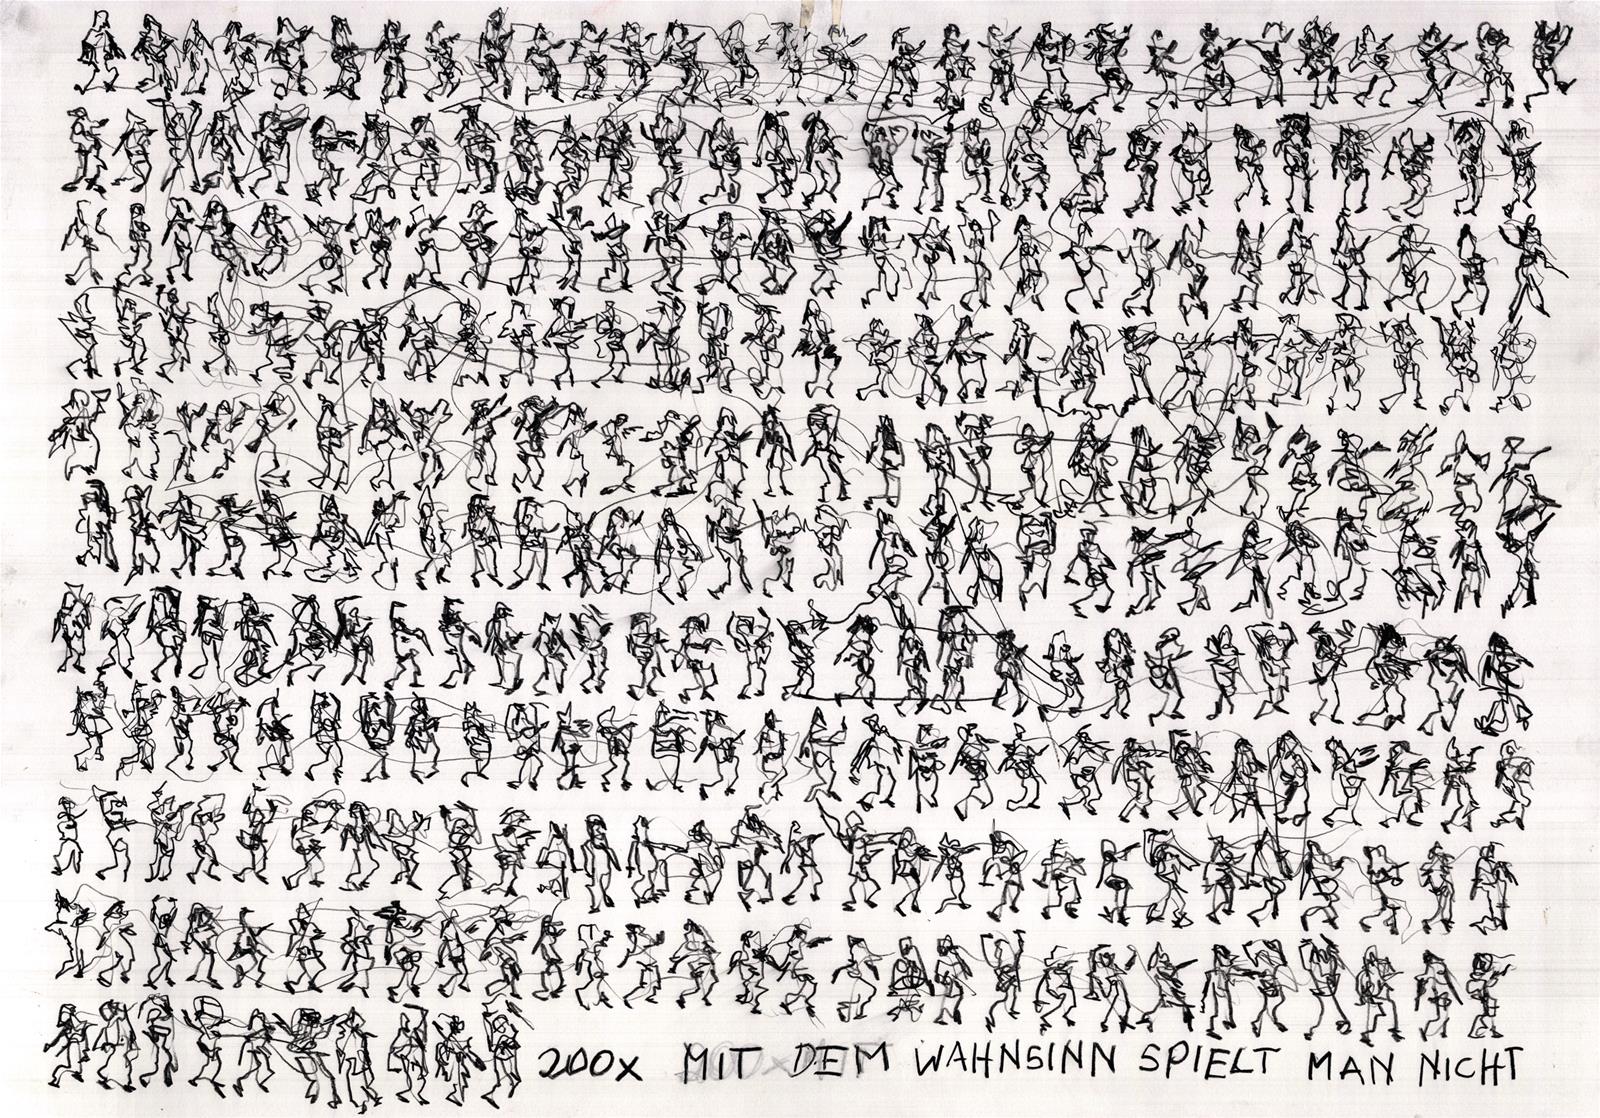 200x MIT DEM WAHNSINN SPIELT MAN NICHT